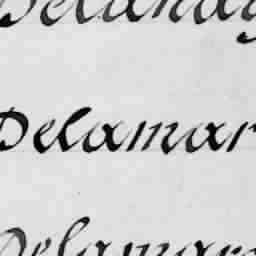 Delanay
Delamar
Delamare